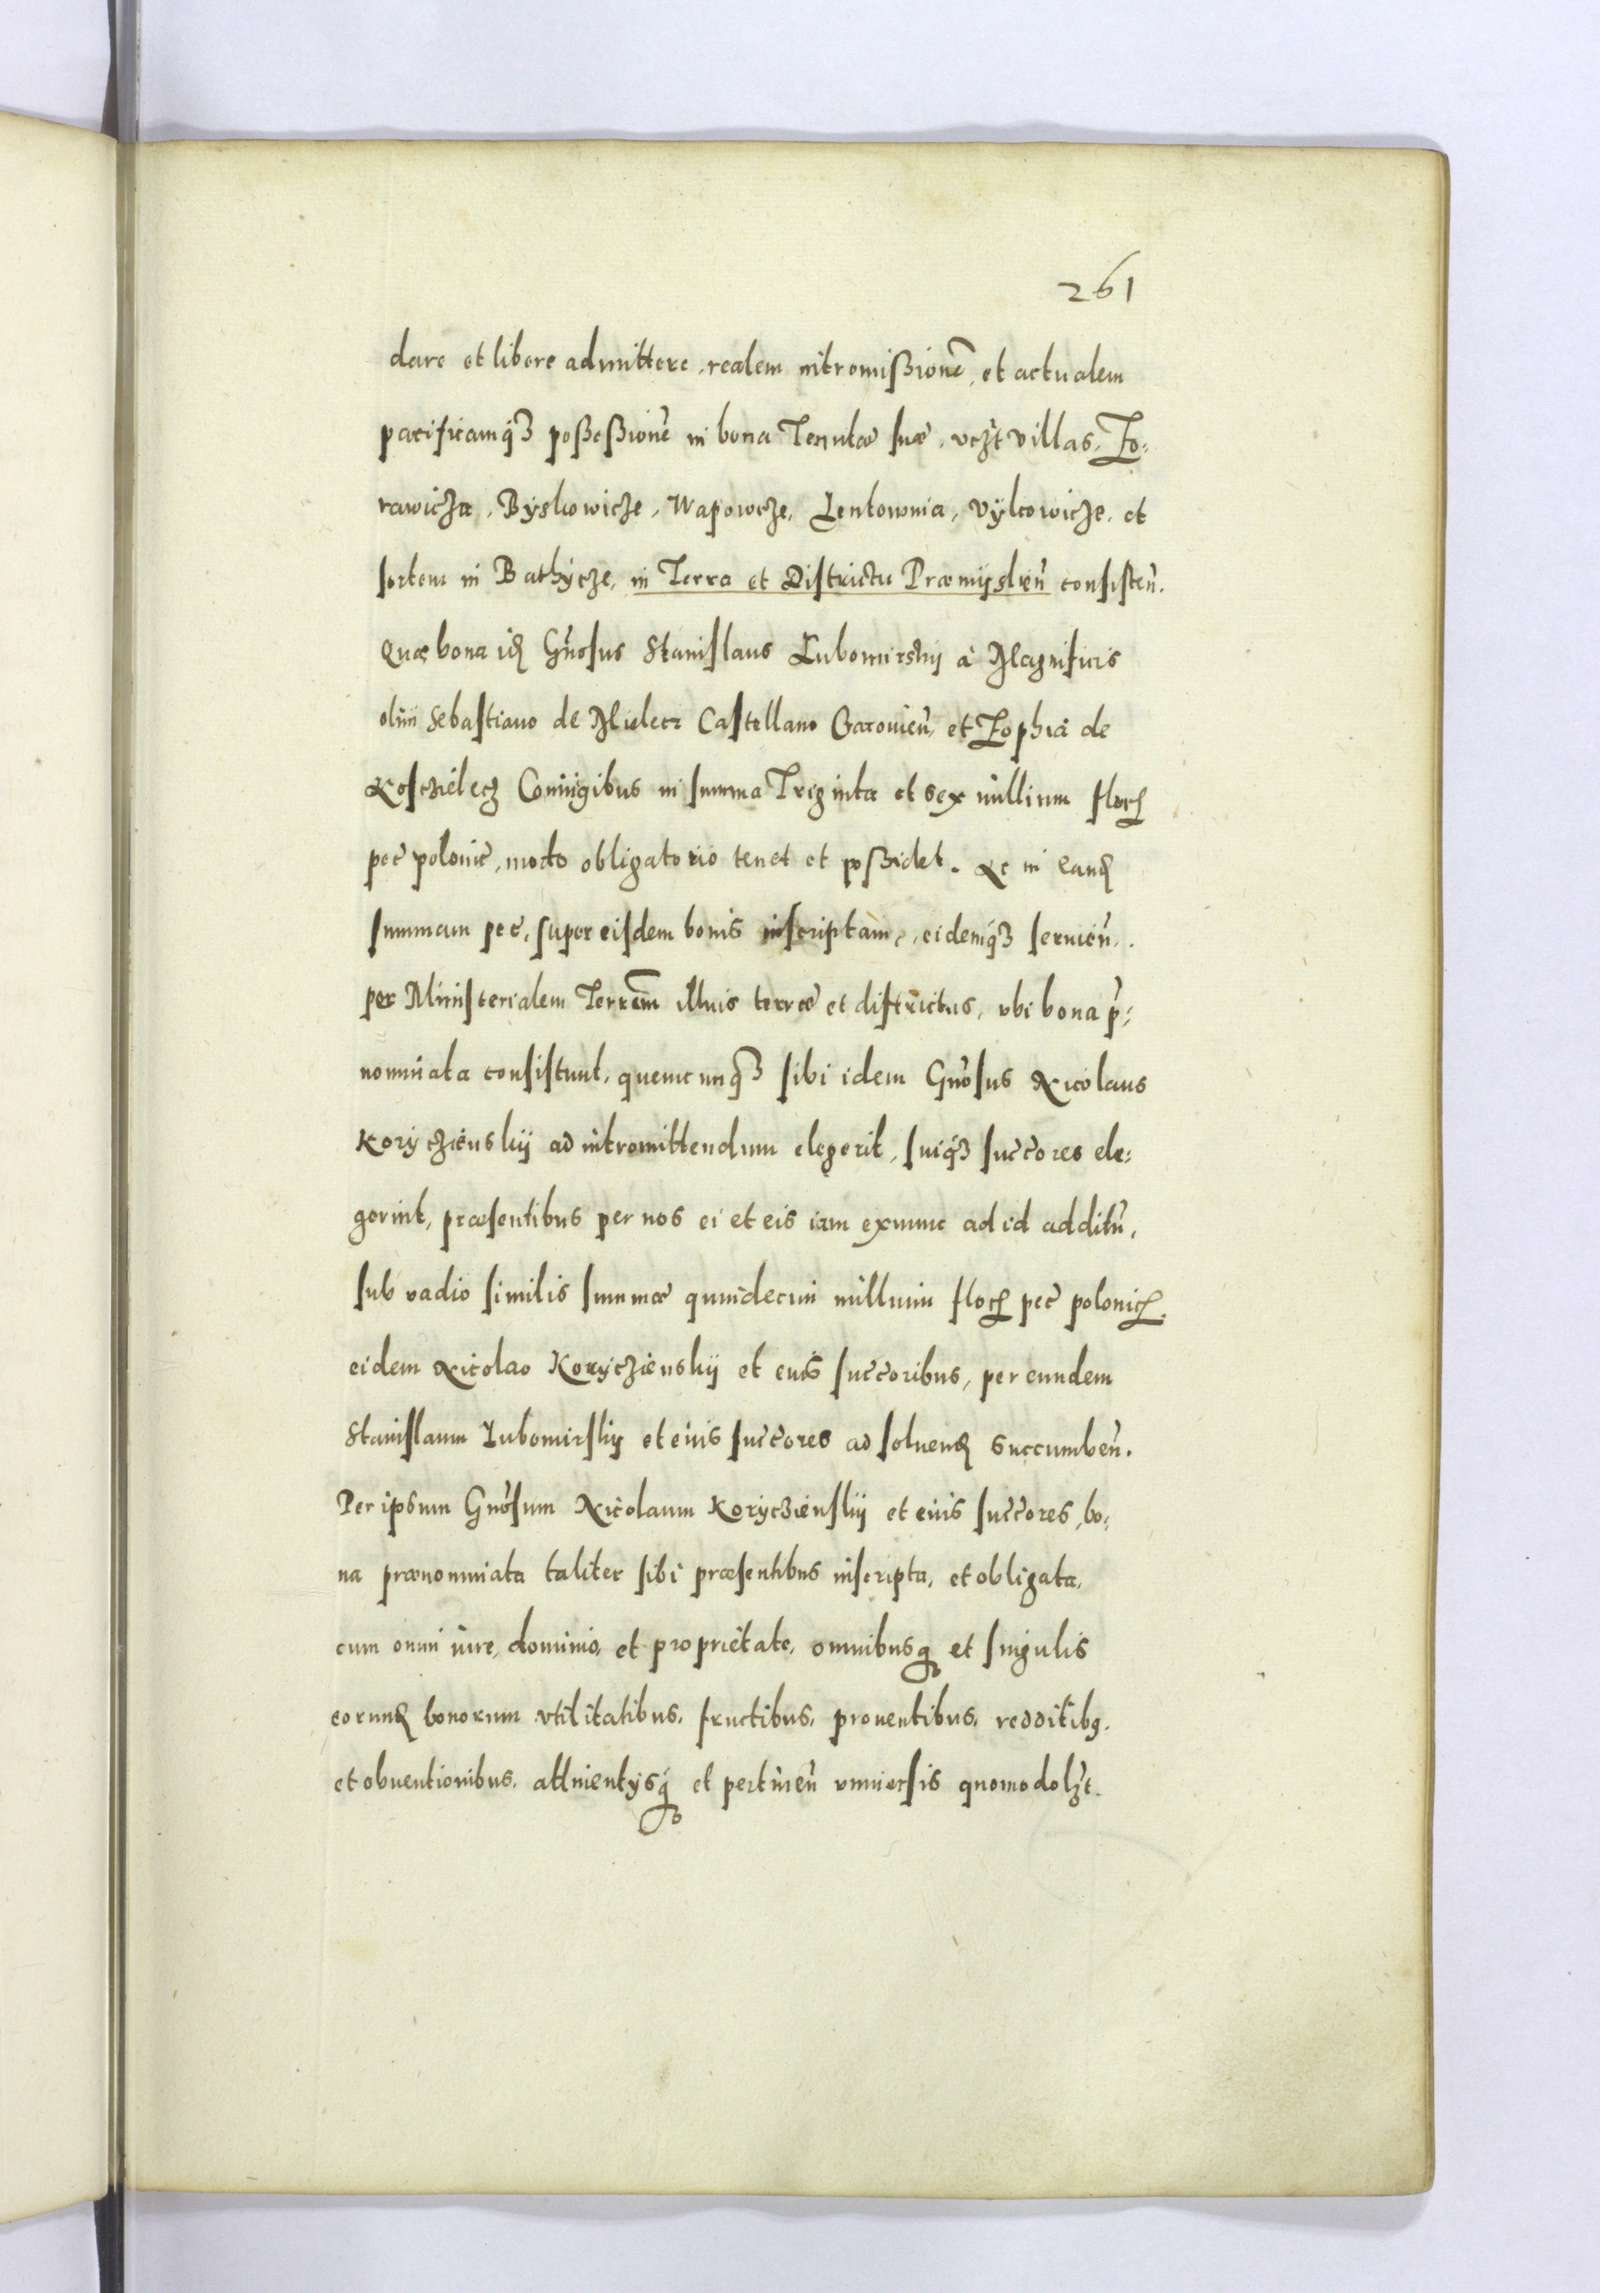 261
dare et libere admittere, realem intromißionẽ, et actualem
pacificamq̃ꝫ poßeßionẽ in bona Tenutæ suæ, vcꝫt villas, Zo⸗
rawicza, Byskowicze, Wapowcze, Lentownia, Vylcowicze, et
sortem in Bathycze, in Terra et Districtu Præmysliẽn consisteñ.
Quæ bona idẽ Gñosus Stanislaus Lubomirskij à Magnificis
olim Sebastiano de Mielecz Castellano Cracouieñ, et Zophia de
Koszcielecz Coniugibus in summa Triginta et sex millium floꝝ
pec̃ polonic̃, modo obligatorio tenet et poßidet. Ac in eandẽ
summam pec̃, super eisdem bonis inscriptam, eidemq̃ꝫ seruieñ.
per Ministerialem Terrẽm illius terræ et districtus, vbi bona p̃⸗
nominata consistunt, quemcunqꝫ sibi idem Gñosus Nicolaus
Koryczienskij ad intromittendum elegerit, suiq̃ꝫ succ̃ores ele⸗
gerint, præsentibus per nos ei et eis iam exnunc ad id additũ,
sub vadio similis summæ quindecim millium floꝝ pec̃ polonicꝝ.
eidem Nicolao Koryczienskij et eius succ̃oribus, per eundem
Stanislaum Lubomirskij et eius succ̃ores ad soluendẽ succumbeñ.
Per ipsum Gñosum Nicolaum Koryczienskij et eius succ̃ores, bo⸗
na prænominata taliter sibi præsentibus inscripta, et obligata,
cum omni iure, dominio, et proprietate, omnibusq; et singulis
eorundẽ bonorum vtilitatibus, fructibus, prouentibus, redditibꝫ,
et obuentionibus, attinentÿsq; et pertineñ vniuersis quomodolꝫt.